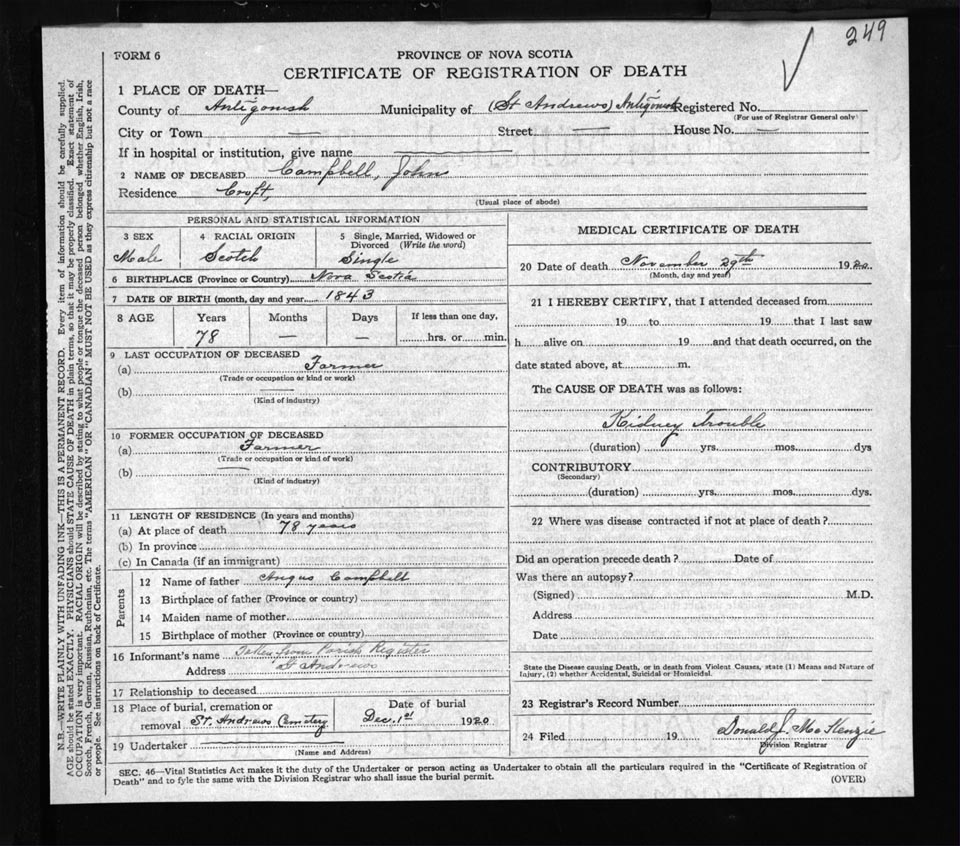 249
FORM 6
PROVINCE OF NOVA SCOTIA
CERTIFICATE OF REGISTRATION OF DEATH
1 PLACE OF DEATH—
County of Antigonish Municipality of (St Andrews) Antigonish Registered No.
(For use of Registrar General only)
City or Town — Street — House No. —
If in hospital or institution, give name
2 NAME OF DECEASED Campbell, John
Residence Croft,
(Usual place of abode)
PERSONAL AND STATISTICAL INFORMATION
3 SEX
Male
4 RACIAL ORIGIN
Scotch
5 Single, Married, Widowed or
Divorced (Write the word)
Single
6 BIRTHPLACE (Province or Country) Nova Scotia
7 DATE OF BIRTH (month, day and year) 1843
8 AGE Years Months Days If less than one day,
78 — — hrs. or min.
9 LAST OCCUPATION OF DECEASED
(a) Farmer
(Trade or occupation or kind or work)
(b)
(Kind of industry)
10 FORMER OCCUPATION OF DECEASED
(a) Farmer
(Trade or occupation or kind of work)
(b) —
(Kind of industry)
11 LENGTH OF RESIDENCE (In years and months)
(a) At place of death 78 years
(b) In province
(c) In Canada (if an immigrant)
Parents
12 Name of father Angus Campbell
13 Birthplace of father (Province or country)
14 Maiden name of mother
15 Birthplace of mother (Province or country)
16 Informant's name Taken from Parish Register
Address St Andrews
17 Relationship to deceased
18 Place of burial, cremation or
removal St. Andrews Cemetery
Date of burial
Dec. 1st 1920
19 Undertaker
(Name and Address)
MEDICAL CERTIFICATE OF DEATH
20 Date of death November 29th 1920
(Month, day and year)
21 I HEREBY CERTIFY, that I attended deceased from
19 to 19 that I last saw
h alive on 19 and that death occurred, on the
date stated above, at m.
The CAUSE OF DEATH was as follows:
Kidney Trouble
(duration) yrs. mos. dys
CONTRIBUTORY
(Secondary)
(duration) yrs. mos. dys.
22 Where was disease contracted if not at place of death?
Did an operation precede death? Date of
Was there an autopsy?
(Signed) M.D.
Address
Date
State the Disease causing Death, or in death from Violent Causes, state (1) Means and Nature of
Injury, (2) whether Accidental, Suicidal or Homicidal.
23 Registrar's Record Number
24 Filed 19 Donald J. MacKenzie
Division Registrar
SEC. 46—Vital Statistics Act makes it the duty of the Undertaker or person acting as Undertaker to obtain all the particulars required in the "Certificate of Registration of
Death" and to fyle the same with the Division Registrar who shall issue the burial permit.
(OVER)
N.B.—WRITE PLAINLY WITH UNFADING INK—THIS IS A PERMANENT RECORD. Every item of information should be carefully supplied.
AGE should be stated EXACTLY. PHYSICIANS should STATE CAUSE OF DEATH in plain terms, so that it may be properly classified. Exact statement of
OCCUPATION is very important. RACIAL ORIGIN will be described by stating to what people or tongue the deceased person belonged whether English, Irish,
Scotch, French, German, Russian, Ruthenian, etc. The terms "AMERICAN" OR "CANADIAN" MUST NOT BE USED as they express citizenship but not a race
or people. See instructions on back of Certificate.